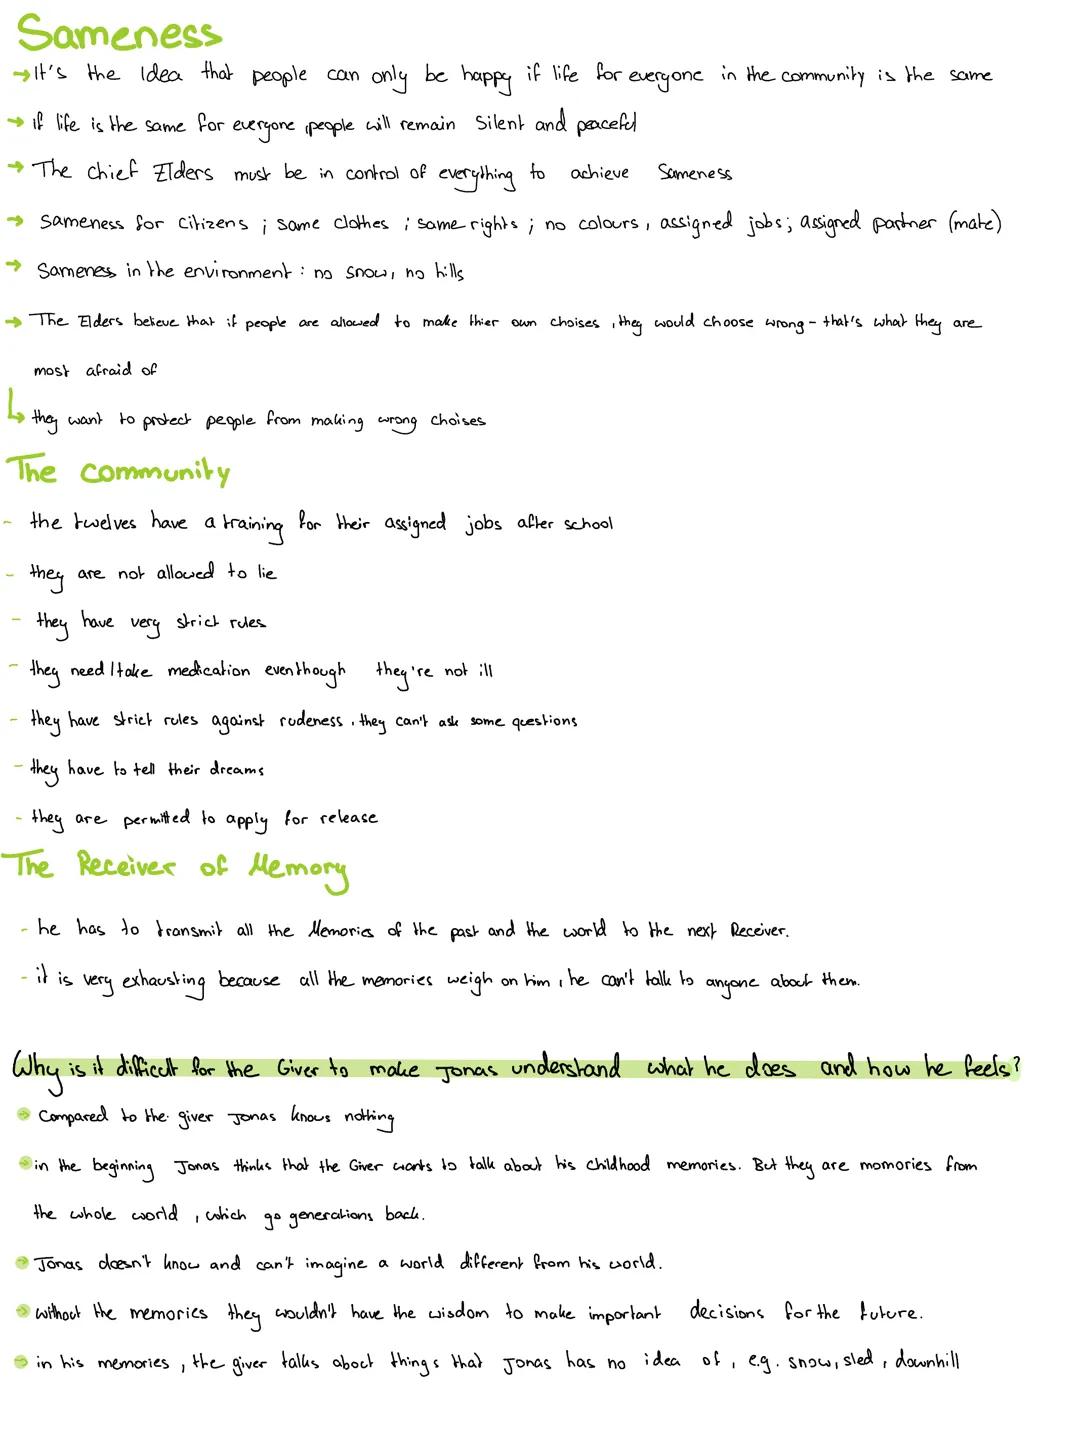 Sameness
→ It's the Idea that people can only be happy if life for everyone in the community is the same
→ if life is the same for everyone, people will remain Silent and peaceful
→ The chief Elders must be in control of everything to achieve Sameness
→ Sameness for Citizens ; same clothes ; same rights ; no colours, assigned jobs; assigned partner (mate)
→ Sameness in the environment : no snow, no hills
→ The Elders believe that if people are allowed to make thier own choises, they would choose wrong - that's what they are
most afraid of
↳ they want to protect people from making wrong choises
The community
- the twelves have a training for their assigned jobs after school
- they are not allowed to lie
- they have very strict rules
- they need/take medication eventhough they're not ill
- they have strict rules against rudeness, they can't ask some questions
- they have to tell their dreams
- they are permitted to apply for release
The Receiver of Memory
- he has to transmit all the Memories of the past and the world to the next Receiver.
- it is very exhausting because all the memories weigh on him, he can't talk to anyone about them.
Why is it difficult for the Giver to make Jonas understand what he does and how he feels?
→ Compared to the giver Jonas knows nothing
→ in the beginning Jonas thinks that the Giver wants to talk about his childhood memories. But they are momories from
the whole world, which go generations back.
→ Jonas doesn't know and can't imagine a world different from his world.
→ without the memories they wouldn't have the wisdom to make important decisions for the future.
→ in his memories, the giver talks about things that Jonas has no idea of, e.g. snow, sled, downhill